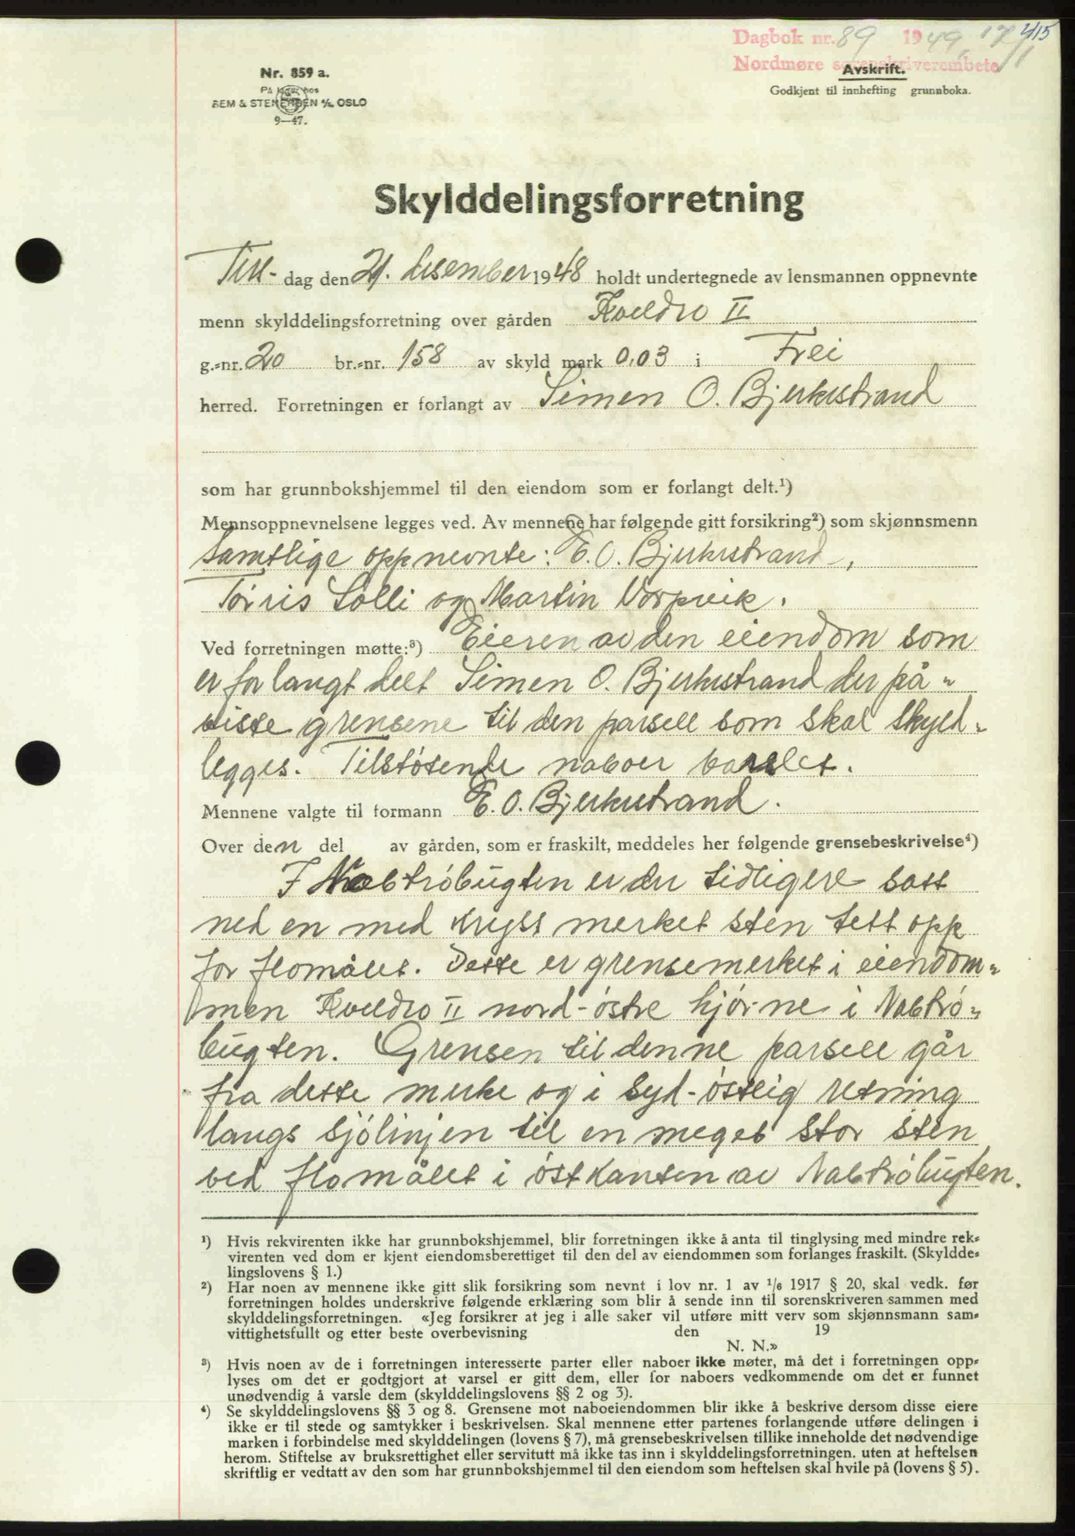 415
Dagbok nr. 89 1949, 17/1
Nordmøre sorenskriverembete
Avskrift.
Godkjent til innhefting grunnboka.
Nr. 859 a.
På lager hos
SEM & STENERSEN A/S, OSLO
9—47.
Skylddelingsforretning
Tirs- dag den 21. desember 1948 holdt undertegnede av lensmannen oppnevnte
menn skylddelingsforretning over gården Kveldro II
g.-nr. 20 br.-nr. 158 av skyld mark 0,03 i Frei
herred. Forretningen er forlangt av Simen O. Bjerkestrand
som har grunnbokshjemmel til den eiendom som er forlangt delt.¹)
Mennsoppnevnelsene legges ved. Av mennene har følgende gitt forsikring²) som skjønnsmenn
samtlige oppnevnte: E. O. Bjerkestrand,
Torris Solli og Martin Vorpvik.
Ved forretningen møtte:³) Eieren av den eiendom som
er forlangt delt Simen O. Bjerkestrand der på-
viste grensene til den parsell som skal skyld-
legges. Tilstøtende naboer varslet.
Mennene valgte til formann E. O. Bjerkestrand.
Over den del av gården, som er fraskilt, meddeles her følgende grensebeskrivelse⁴)
I Nabtrøbugten er der tidligere satt
ned en med kryss merket sten tett opp
for flomålet. Dette er grensemerket i eiendom-
men Kveldro II nord-østre hjørne i Nabtrø-
bugten. Grensen til denne parsell går
fra dette merke og i syd-østlig retning
langs sjølinjen til en meget stor sten
ved flomålet i østkanten av Nabtrøbugten.
¹) Hvis rekvirenten ikke har grunnbokshjemmel, blir forretningen ikke å anta til tinglysing med mindre rek-
virenten ved dom er kjent eiendomsberettiget til den del av eiendommen som forlanges fraskilt. (Skyldde-
lingslovens § 1.)
²) Har noen av mennene ikke gitt slik forsikring som nevnt i lov nr. 1 av 1/6 1917 § 20, skal vedk. før
forretningen holdes underskrive følgende erklæring som blir å sende inn til sorenskriveren sammen med
skylddelingsforretningen. «Jeg forsikrer at jeg i alle saker vil utføre mitt verv som skjønnsmann sam-
vittighetsfullt og etter beste overbevisning den 19
N. N.»
³) Hvis noen av de i forretningen interesserte parter eller naboer ikke møter, må det i forretningen opp-
lyses om det er godtgjort at varsel er gitt dem, eller for naboers vedkommende om det er funnet
unødvendig å varsle dem (skylddelingslovens §§ 2 og 3).
⁴) Se skylddelingslovens §§ 3 og 8. Grensene mot naboeiendommen blir ikke å beskrive dersom disse eiere
ikke er til stede og samtykker i beskrivelsen. Skal mennene etter partenes forlangende utføre delingen i
marken i forbindelse med skylddelingen (lovens § 7), må grensebeskrivelsen tillike inneholde det nødvendige
herom. Stiftelse av bruksrettighet eller servitutt må ikke tas inn i skylddelingsforretningen. uten at heftelsen
skriftlig er vedtatt av den som har grunnbokshjemmel til den eiendom som heftelsen skal hvile på (lovens § 5).